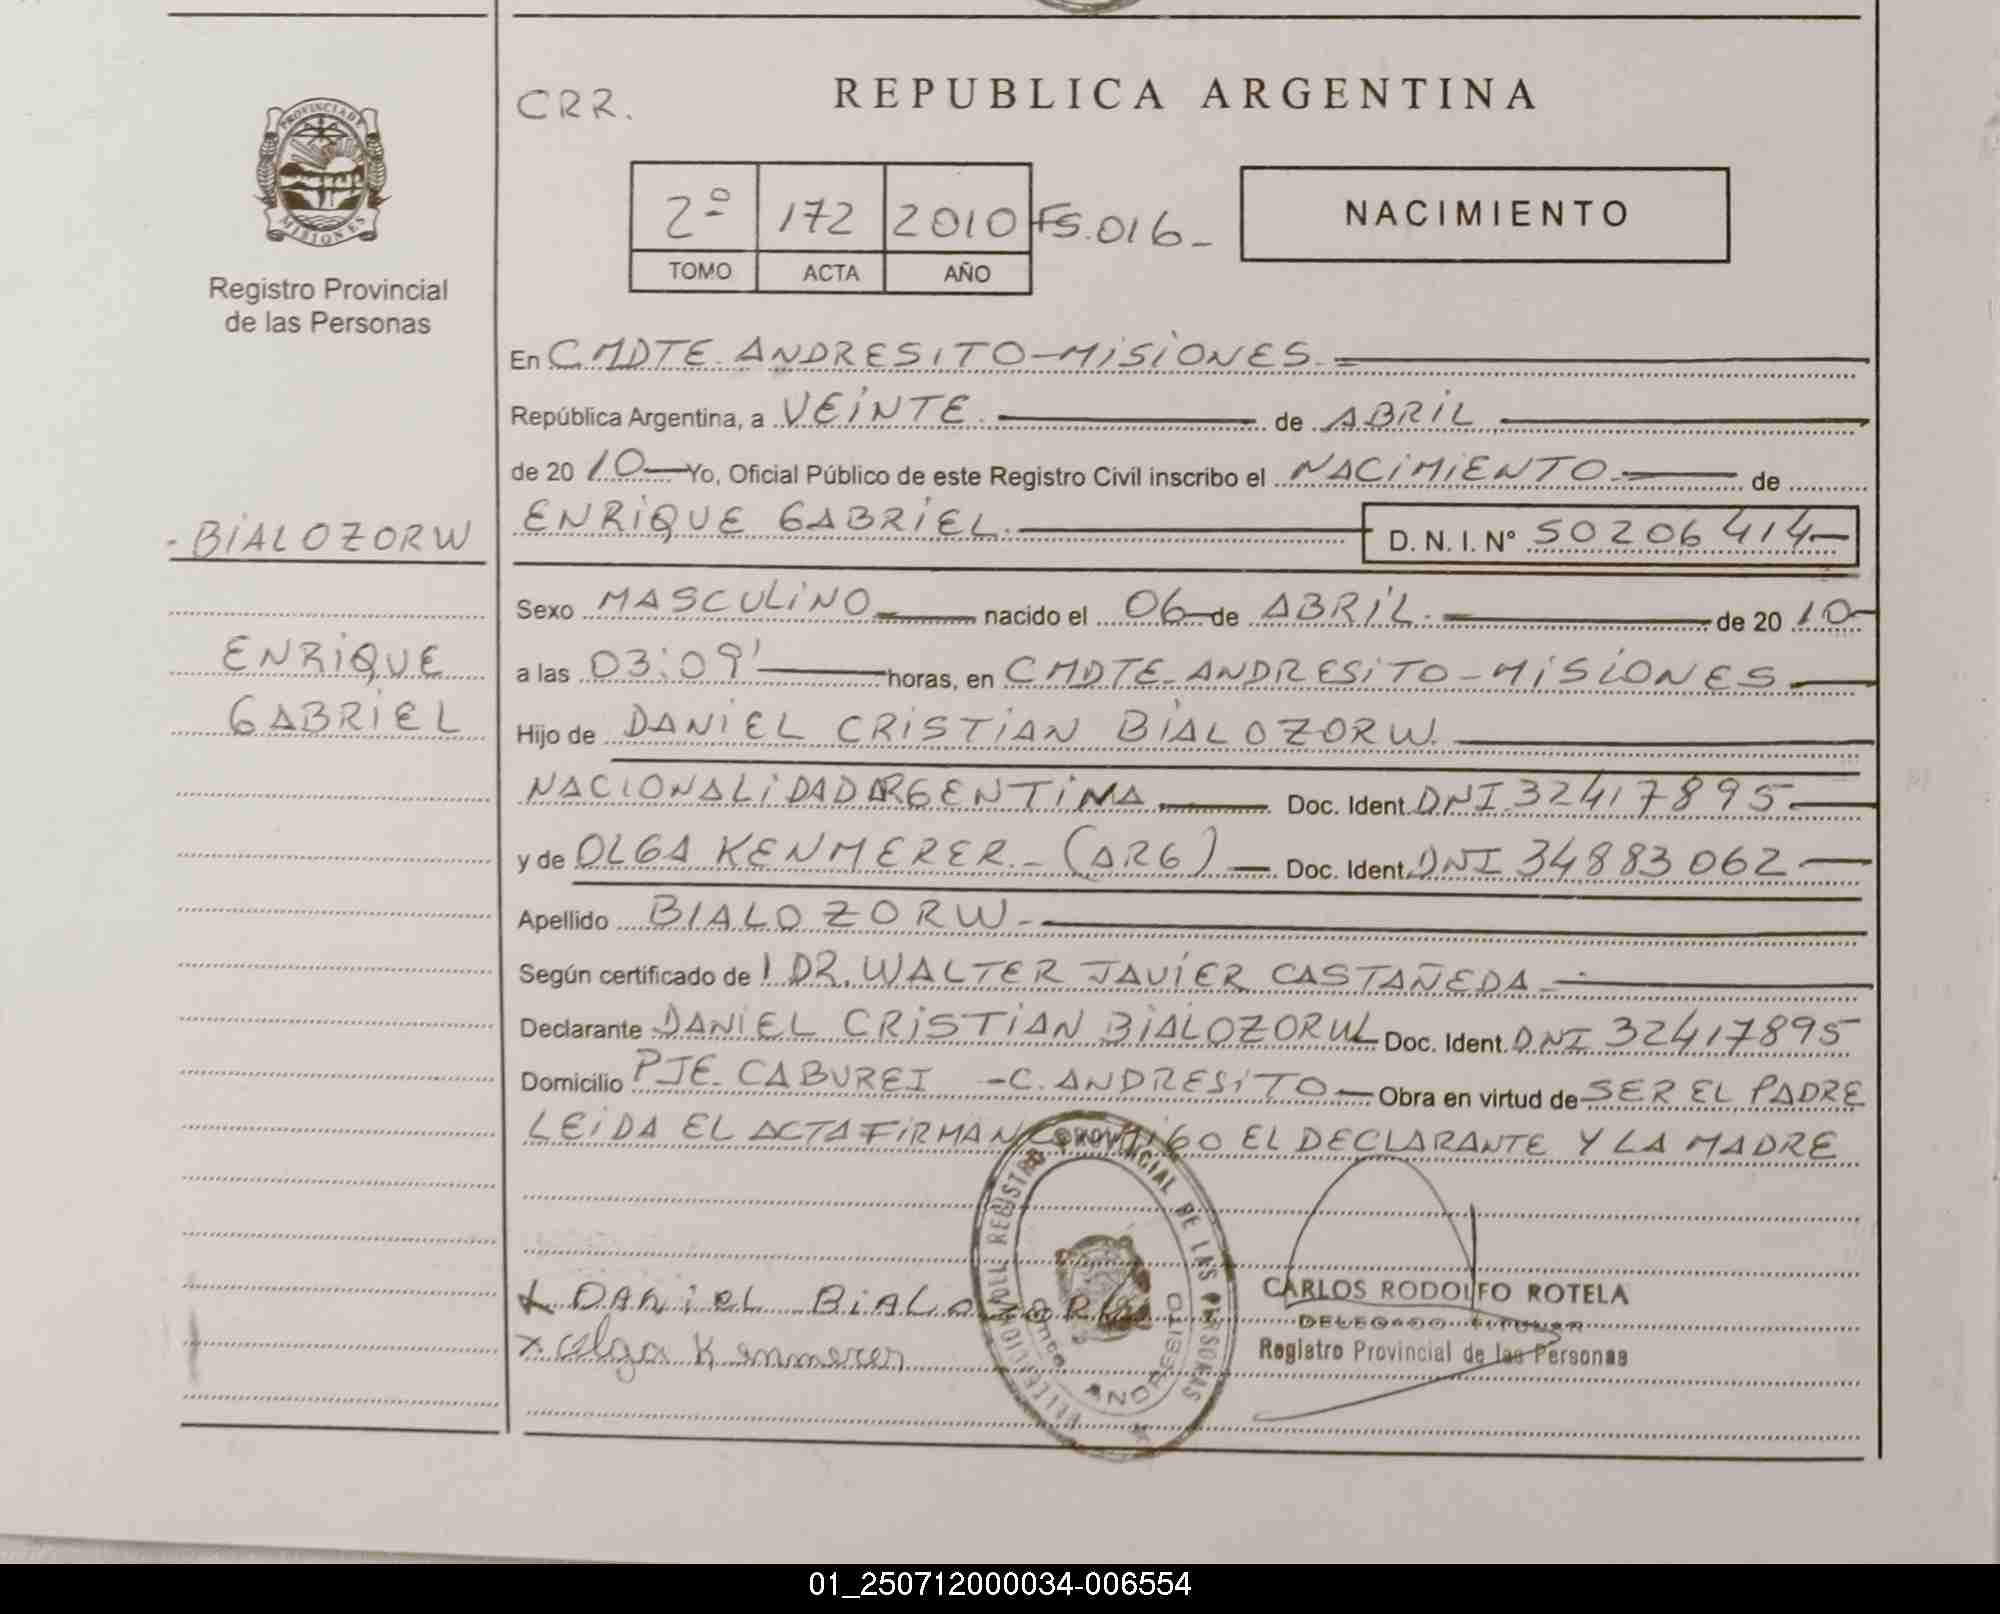 REPUBLICA ARGENTINA
CRR.
PROVINCIA DE
MISIONES
Registro Provincial
de las Personas
2º 172 2010 FS.016-
TOMO ACTA AÑO
NACIMIENTO
En CMDTE. ANDRESITO-MISIONES.
República Argentina, a VEINTE. de ABRIL
de 2010 Yo, Oficial Público de este Registro Civil inscribo el NACIMIENTO de
- BIALOZORW
ENRIQUE GABRIEL. D. N. I. Nº 50206414
Sexo MASCULINO nacido el 06 de ABRIL. de 2010
ENRIQUE
a las 03:09' horas, en CMDTE-ANDRESITO-MISIONES
GABRIEL
Hijo de DANIEL CRISTIAN BIALOZORW.
NACIONALIDAD ARGENTINA Doc. Ident. DNI 32417895
y de OLGA KENMERER.- (ARG) Doc. Ident. DNI 34883062
Apellido BIALOZORW-
Según certificado de l DR. WALTER JAVIER CASTAÑEDA
Declarante DANIEL CRISTIAN BIALOZORW Doc. Ident. DNI 32417895
Domicilio PJE. CABUREI - C. ANDRESITO Obra en virtud de SER EL PADRE
LEIDA EL ACTA FIRMAN CONMIGO EL DECLARANTE Y LA MADRE
REGISTRO PROVINCIAL DE LAS PERSONAS
ANDRESITO
X DANIEL BIALOZORW
X Olga Kenmerer
CARLOS RODOLFO ROTELA
DELEGADO TITULAR
Registro Provincial de las Personas
01_250712000034-006554